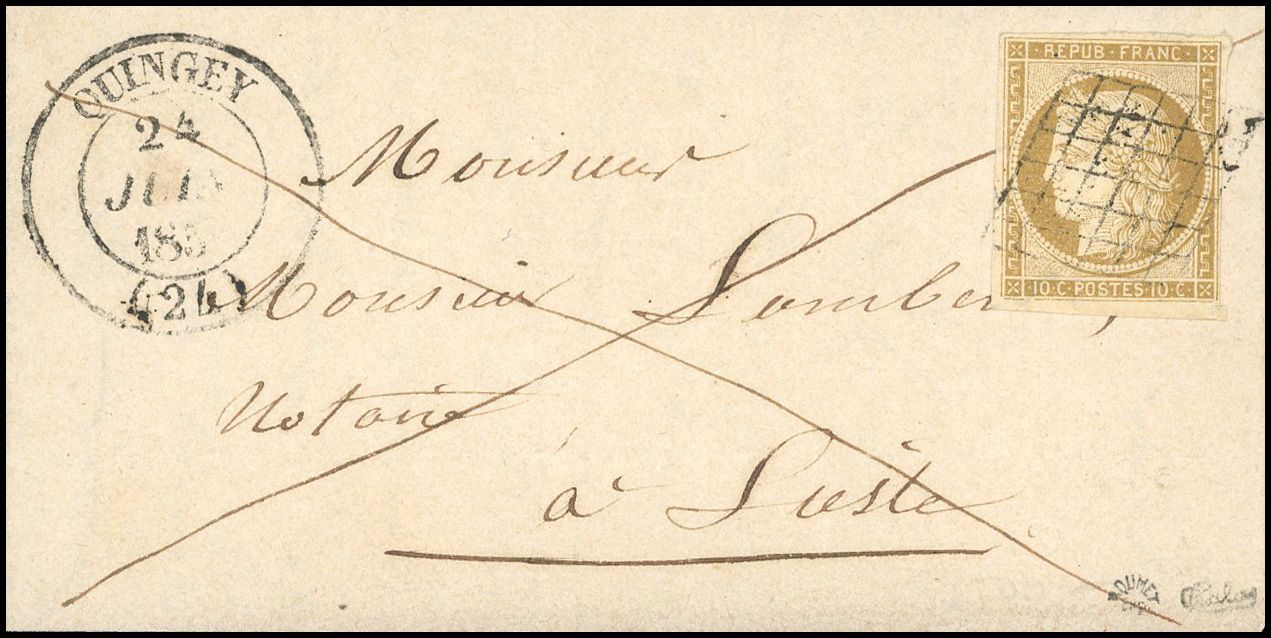 QUINGEY
24
JUIN
185
(24)
REPUB · FRANC
10 · C · POSTES · 10 · C
Monsieur
Monsieur
Notaire
à
ROUMET